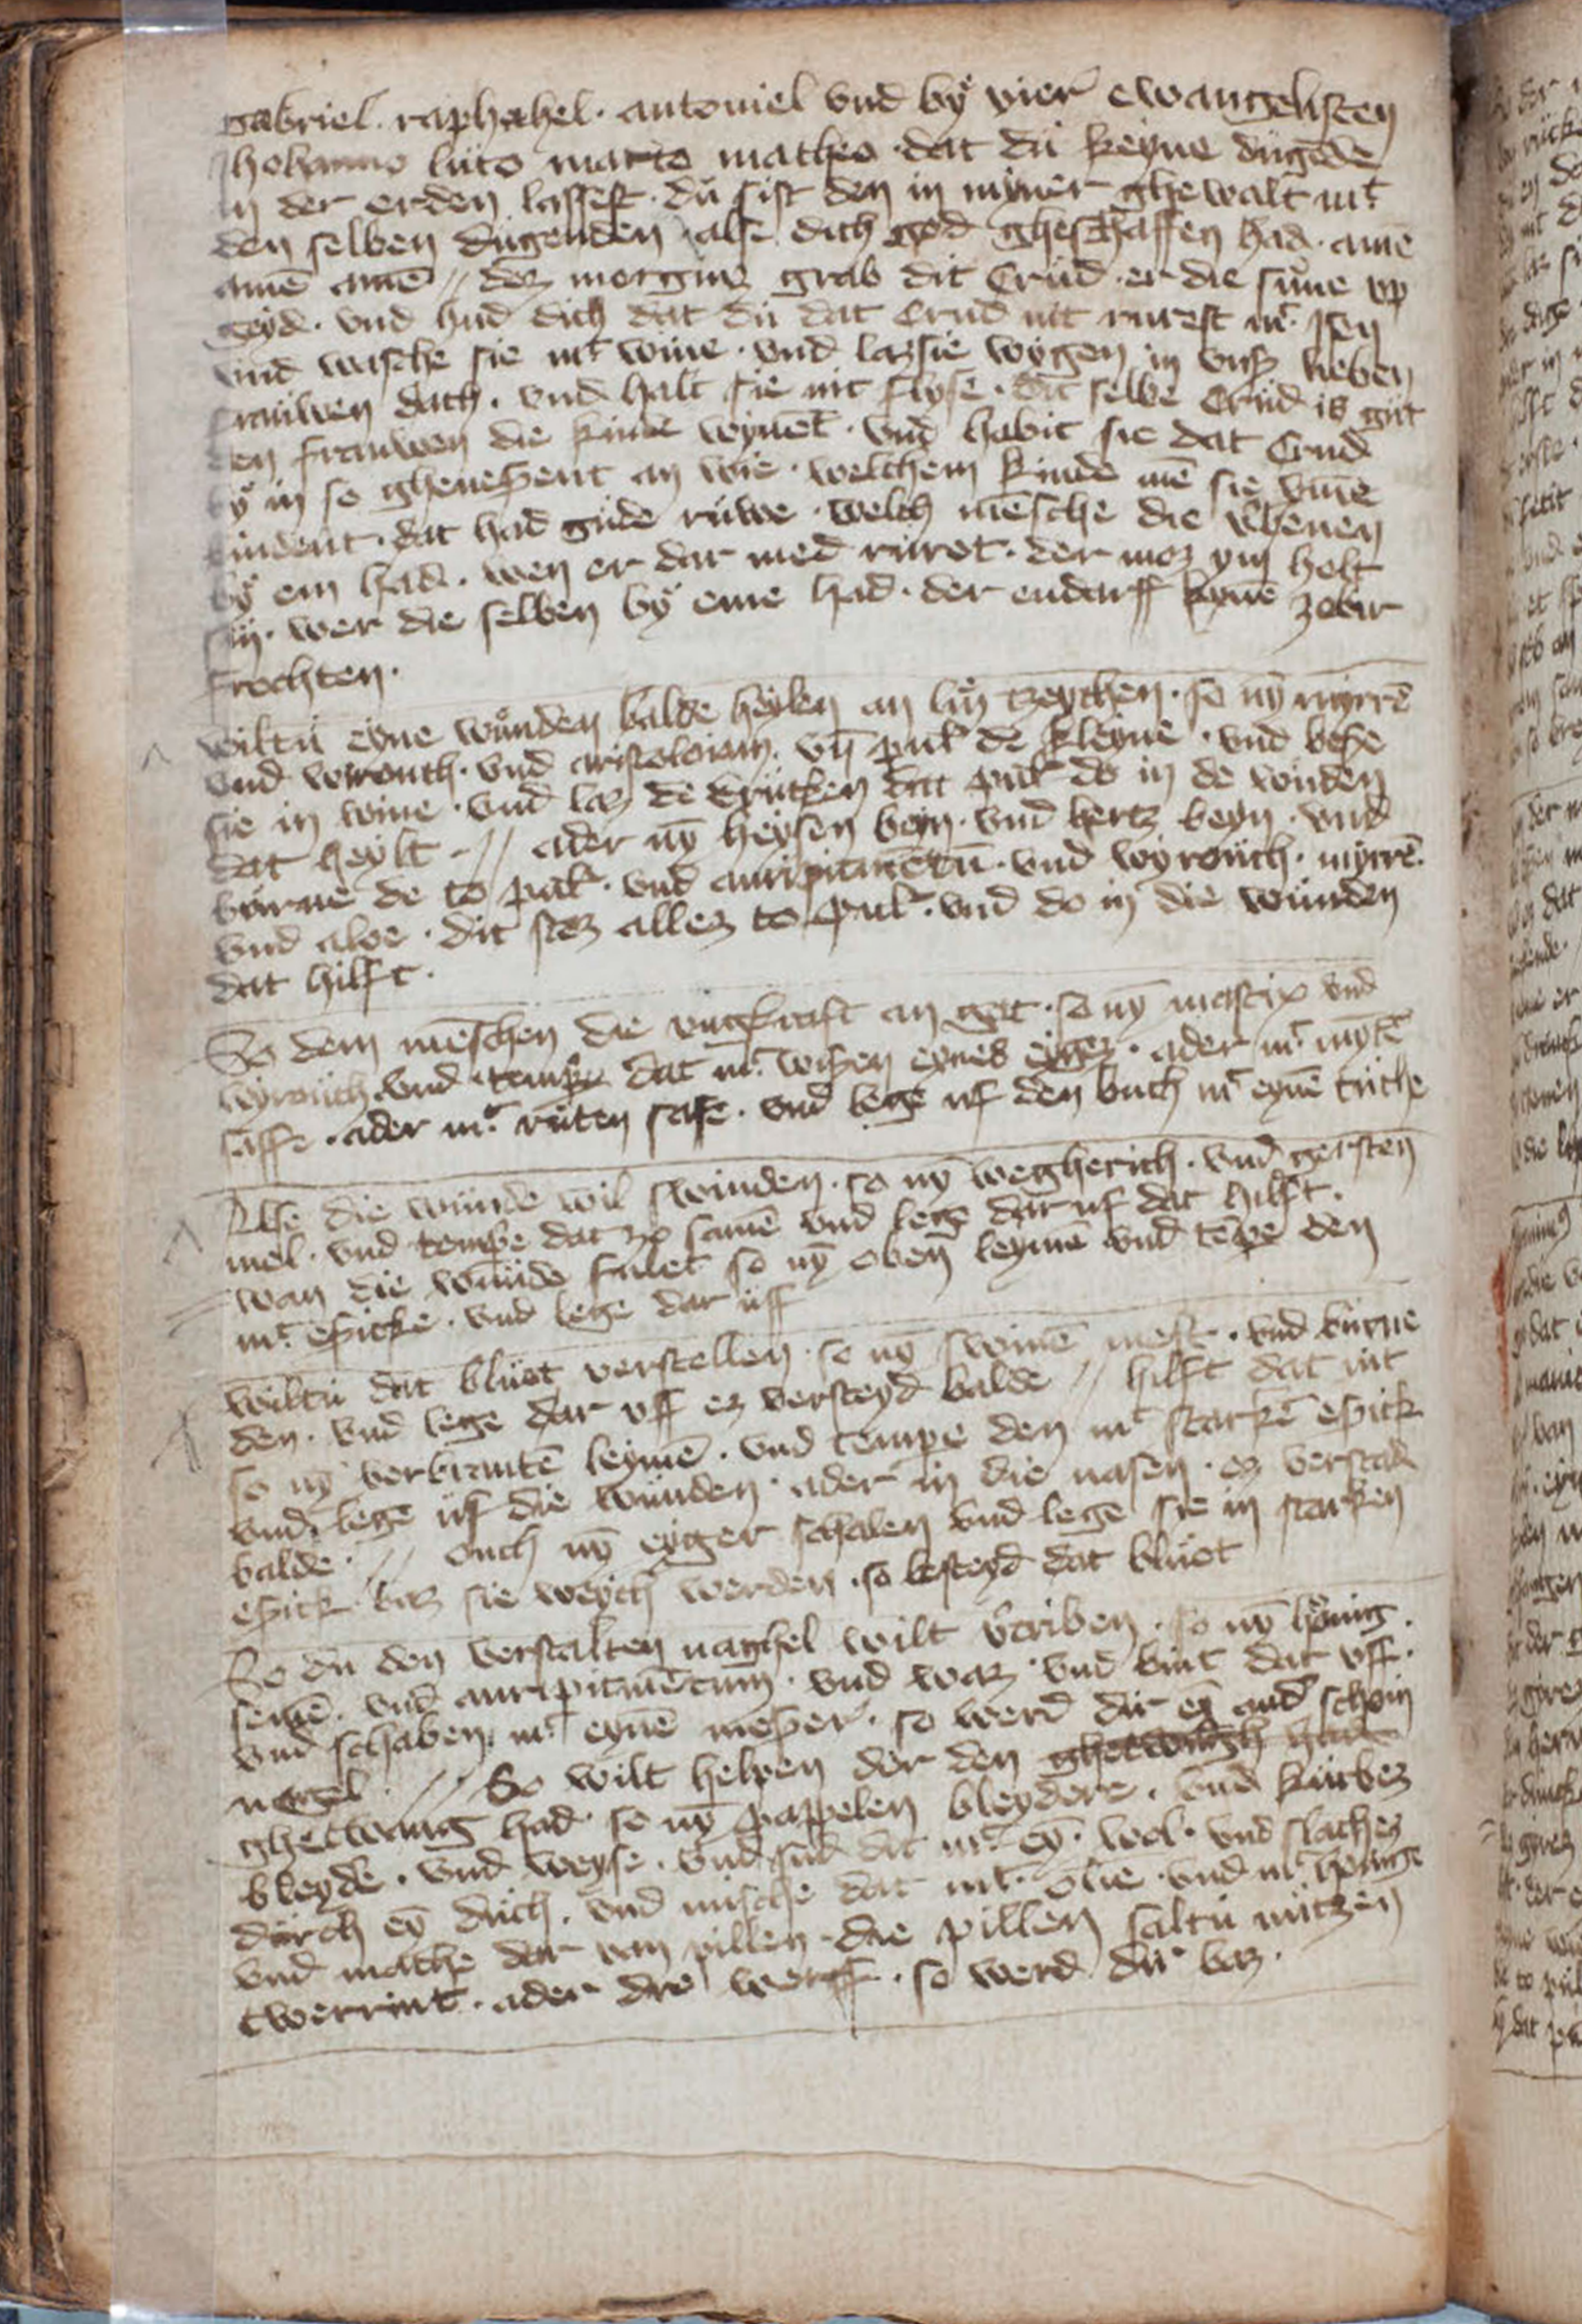 gabriel. raphahel. antoniel vnd bÿ vier ewangelisten
Johanne luco marco matheo. dat du keyne dugede
in der erden lassest. du sist den in myner ghewalt mt
den selben dugenden alse dich god gheschaffen had. amē
amē amē // dez morgenz grab dit crud. er die sune vp
geyd. vnd hud dich dat du dat crud nit rurest mt jsen
vnd wasche sie mt wine. vnd laz sie wygen in vnser lieben
frauwen dach. vnd halt sie mit flyse. dit selbe crud is gut
den frauwen die kinde wynnēt. vnd habit sie dat crud
bÿ in so ghenesent an wie. welchem kinde mē sie vmme
bindent. dat had gude ruwe. welch mēsche die vbenen
bÿ em had. wen er dar med ruret. der moz ym holt
sin. wer die selben bÿ eme had. der endarff kynē zobir
frochten.
wiltu eyne wunden balde heylen an lin tzeychen. so nȳ myrrē
vnd wirouch. vnd aristoloiam. vn̄ pulv̄ de kleyne. vnd beße
sie in wine. vnd laz de drucken dat pulv̄ do in de wūden
dat heylt // ader nȳ heysen beyn. vnd hertz beyn. vnd
burne de to pulv̄. vnd auripimētū. vnd wyrouch. myrrē.
vnd aloe. dit stoz allez to pulv̄. vnd do in die wunden
dat hilft.
So dem mēschen die vngkraft an gat. so nȳ mastix vnd
wyrouch vnd tempe dat mt wißen eynes eygez. ader mt mȳtē
saffe. ader mt ruten safe. vnd lege uf den buch mt eynē tuche
Alse die wunde wil swinden. so nȳ wegherich. vnd gersten
mel. vnd tempe dat zo samē vnd lege dar uf dat hilft.
wan die wunde fulet so nȳ oben leymē vnd tēpe den
mt eßicke. vnd lege dar uff
wiltu dat bluot verstellen. so nȳ swinē mest. vnd burne
den. vnd lege dar vff ez versteyd balde // hilft dat nit
so nȳ verbrantē leymē. vnd tempe den mt starkē eßick
vnd lege uf die wunden. ader in die nasen. ez verstad
balde. // ouch nȳ eyger schalen vnd lege sie in starken
eßick. biz sie weych werden. so besteyd dat bluot
So du den verstalten naghel wilt vtriben. so nȳ honig.
semē. vnd auripimētum. vnd waz vnd bint dat vff.
vnd schaben mt eynē meßer. so werd dir eȳ and schoin
nagel. // So wilt helpen der den ghetwagh had
ghetwang had. so nȳ pappelen bleydere. vnd kurbez
bleyde. vnd weyse. vnd sud dit mt eȳ. wol. vnd slachez
durch eȳ duch. vnd mische dat mt olie. vnd mt honige
vnd mache dar van pillen. die pillen saltu nutzen
twerrint. ader drē werff. so werd dir baz.